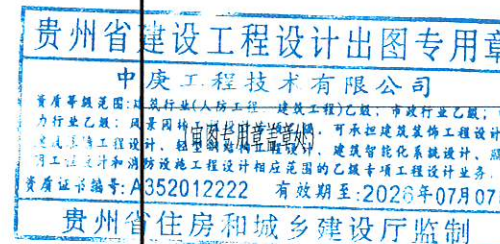 贵州省建设工程设计出图专用章
中庚工程技术有限公司
资质等级范围:建筑行业(人防工程 建筑工程)乙级;市政行业乙级;
力行业乙级;风景园林工程设计 级,可承担建筑装饰工程设计
建筑幕墙工程设计、轻型钢结构工程设计、建筑智能化系统设计、照
明工程设计和消防设施工程设计相应范围的乙级专项工程设计业务;
审图专用章盖章处
资质证书编号:A352012222 有效期至:2026年07月07
贵州省住房和城乡建设厅监制